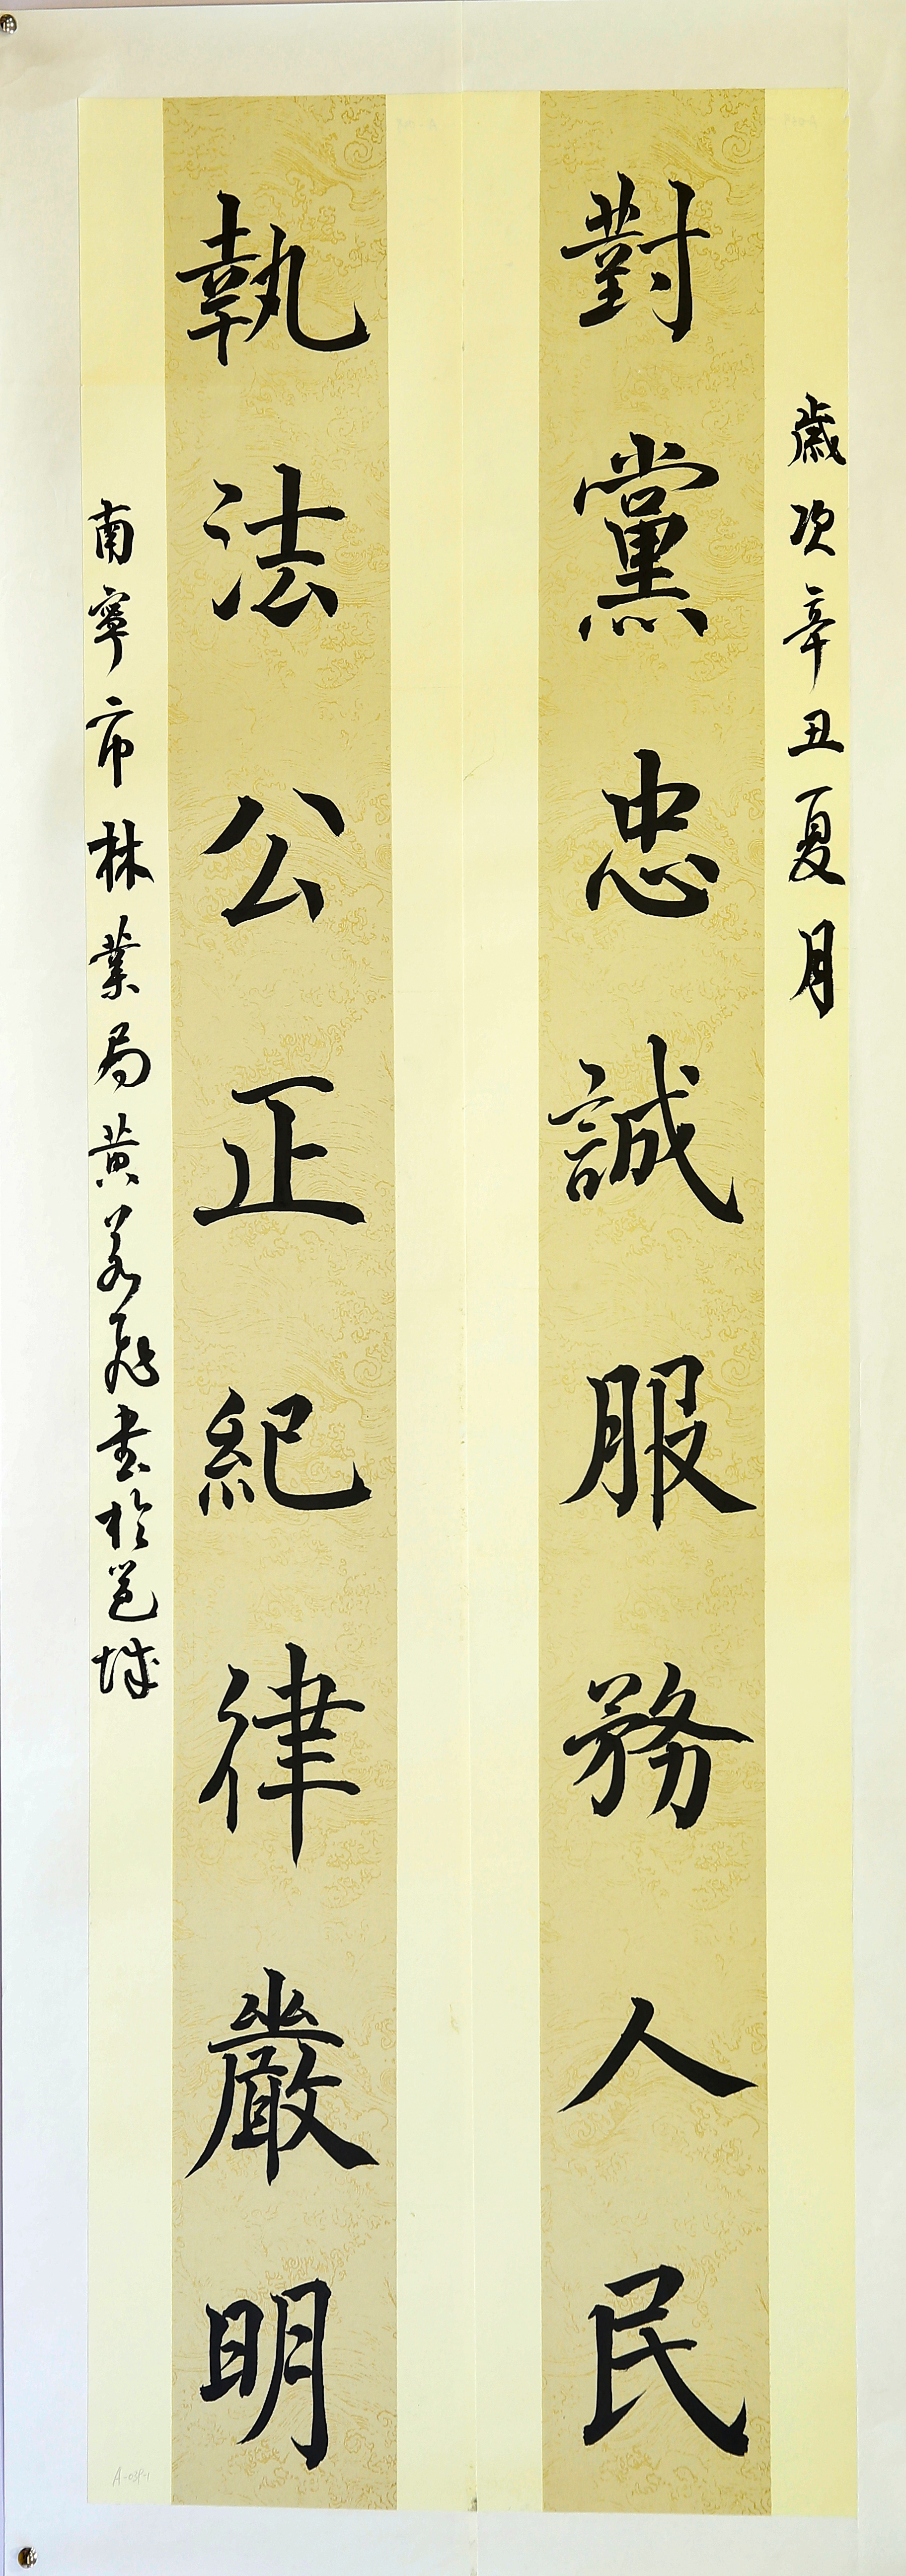 歲次辛丑夏月
對黨忠誠服務人民
執法公正紀律嚴明
南寧市林業局黄若飛书於邕城